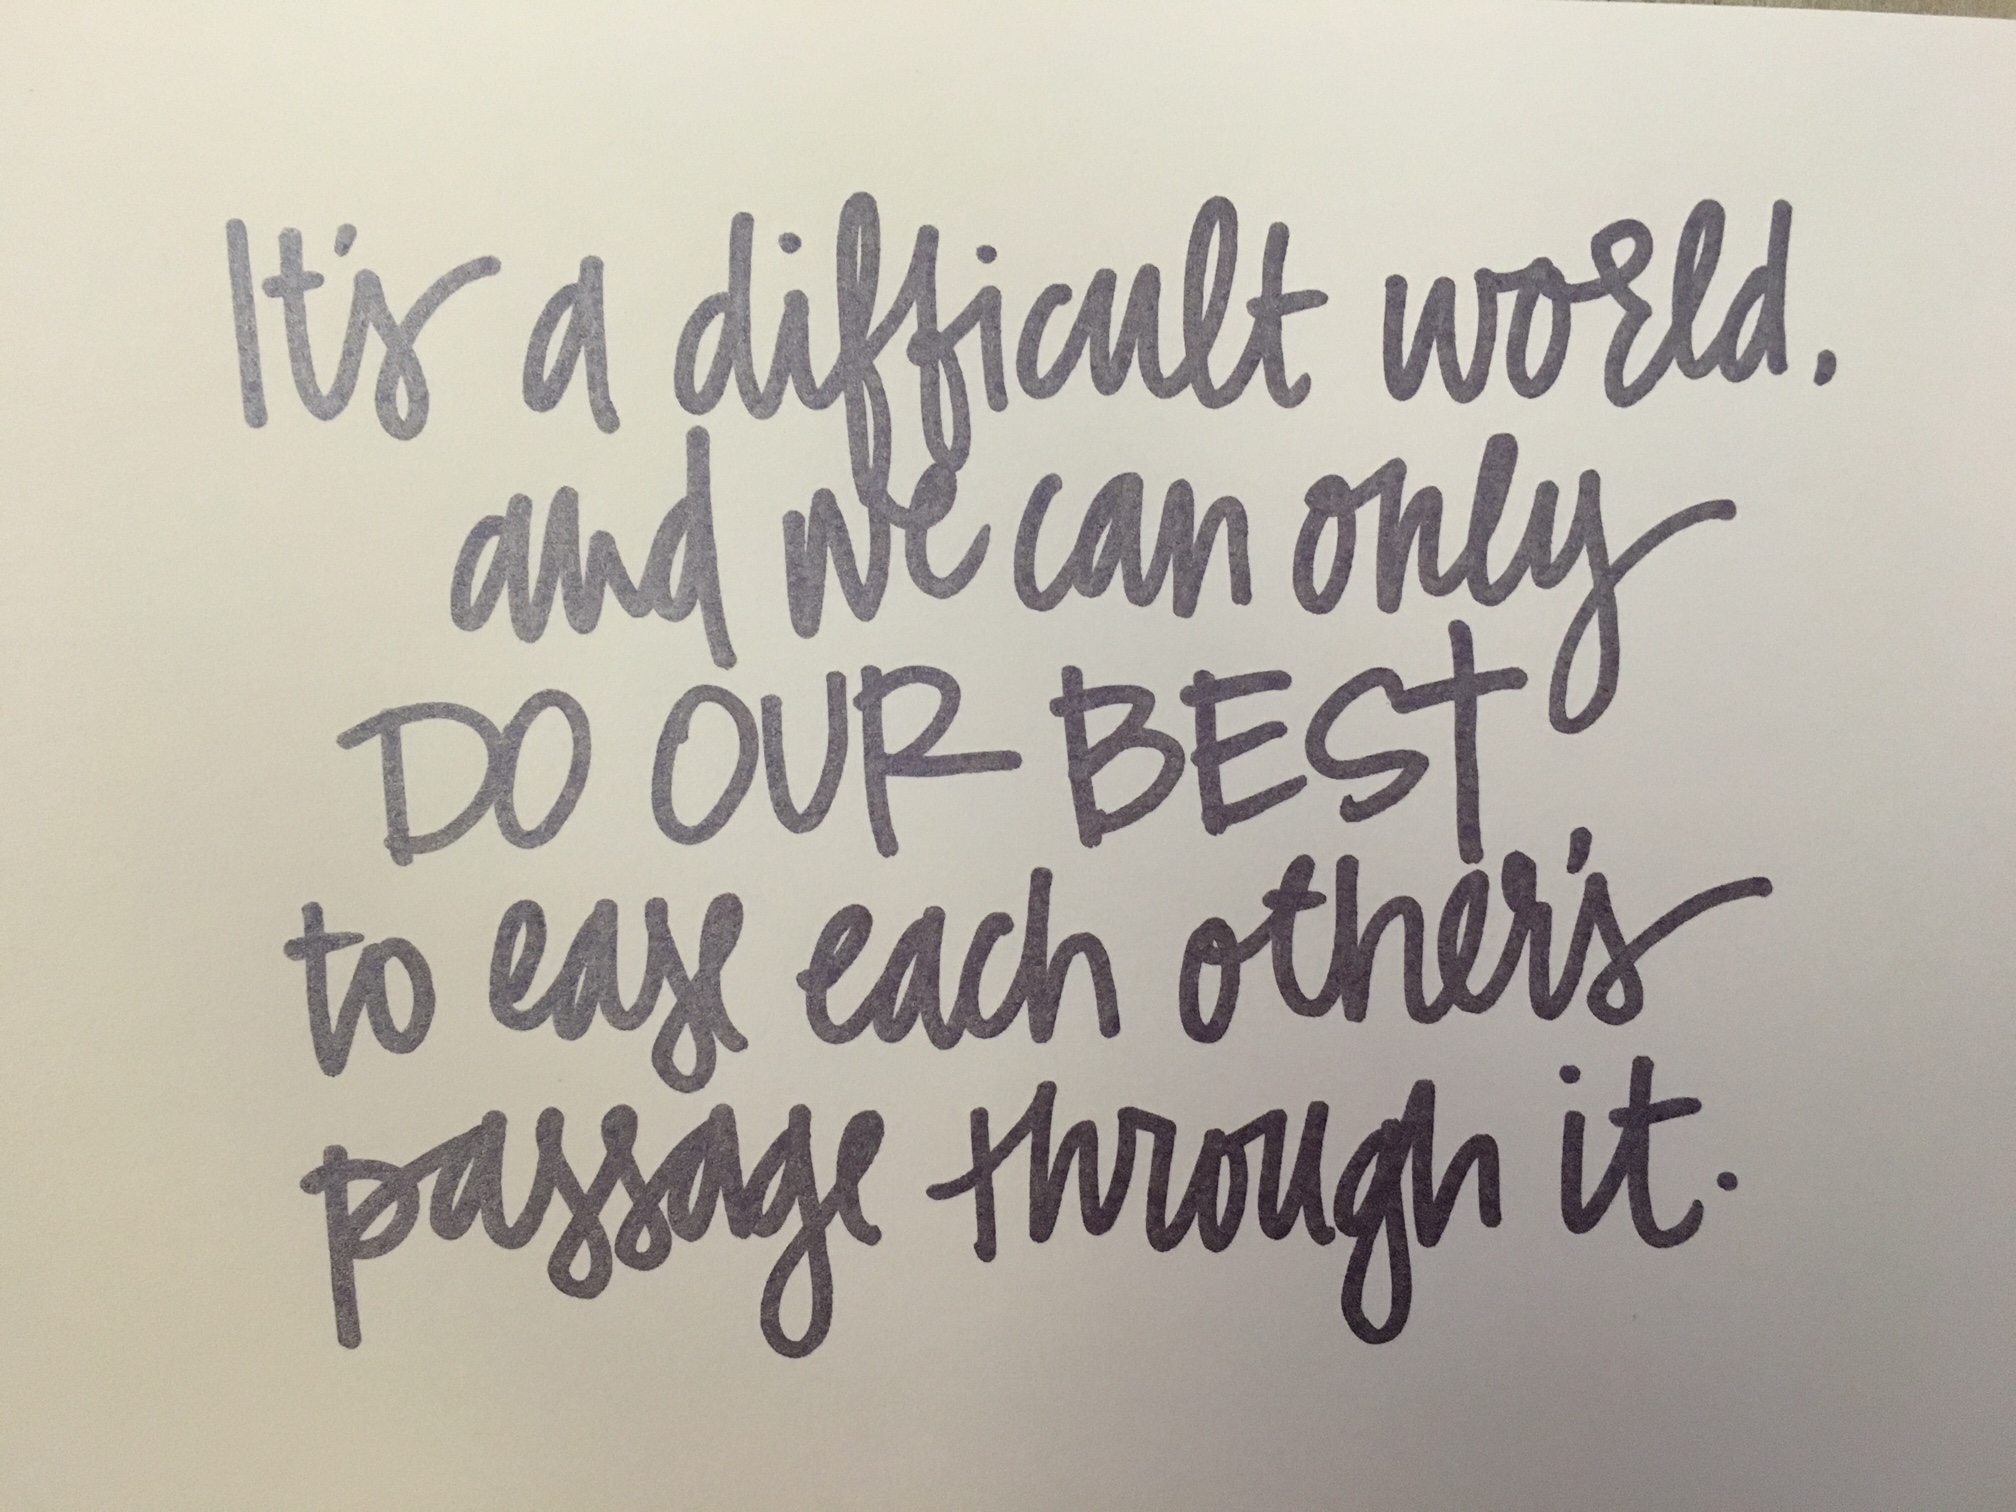 It's a difficult world.
and we can only
DO OUR BEST
to ease each other's
passage through it.